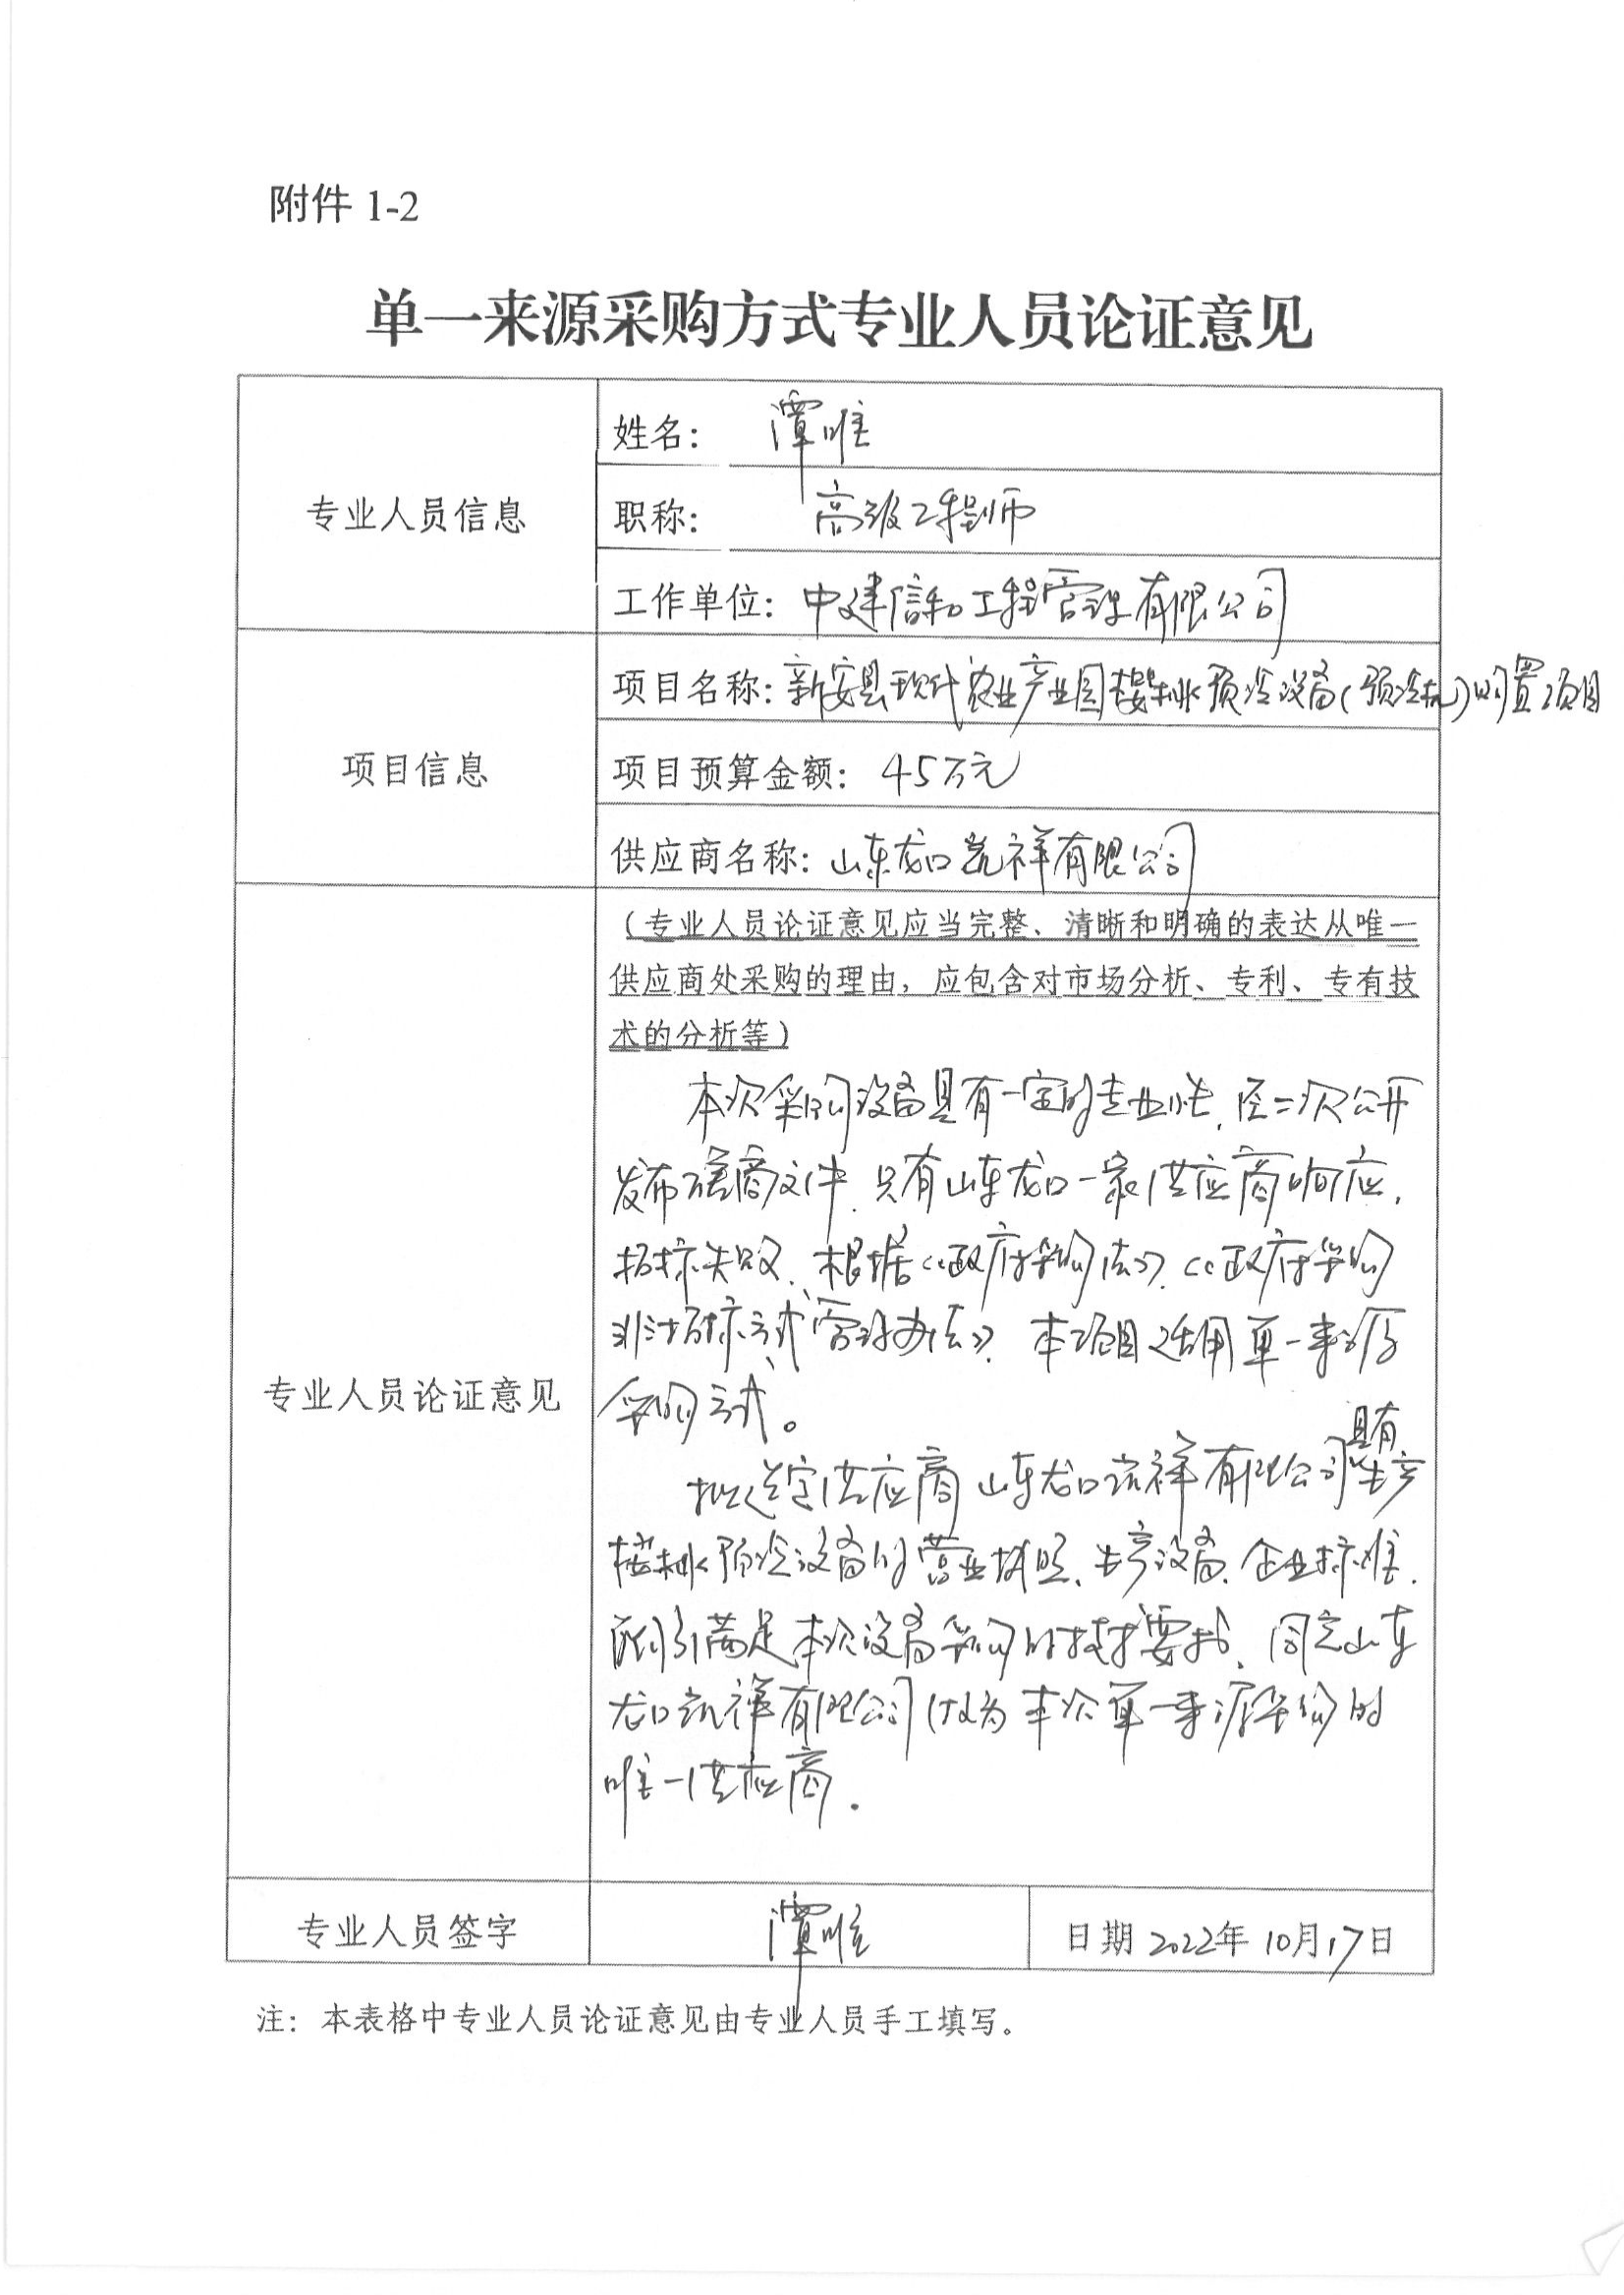 附件 1-2
单一来源采购方式专业人员论证意见
专业人员信息
姓名： 潭唯
职称： 高级工程师
工作单位：中建信和工程管理有限公司
项目信息
项目名称：新安县现代农业产业园樱桃预冷设备(预冷机)购置项目
项目预算金额：45万元
供应商名称：山东龙口凯祥有限公司
专业人员论证意见
（专业人员论证意见应当完整、清晰和明确的表达从唯一
供应商处采购的理由，应包含对市场分析、专利、专有技
术的分析等）
本次采购设备具有一定的专业性，经二次公开
发布磋商文件，只有山东龙口一家供应商响应，
招标失败、根据《政府采购法》、《政府采购
非招标方式管理办法》，本项目适用单一来源
采购方式。
拟选定供应商山东龙口凯祥有限公司具有生产
樱桃预冷设备的营业执照、生产设备、企业标准，
满足本次设备采购的技术要求、同意山东
龙口凯祥有限公司做为本次单一来源采购的
唯一供应商.
专业人员签字
潭唯
日期 2022年10月17日
注：本表格中专业人员论证意见由专业人员手工填写。